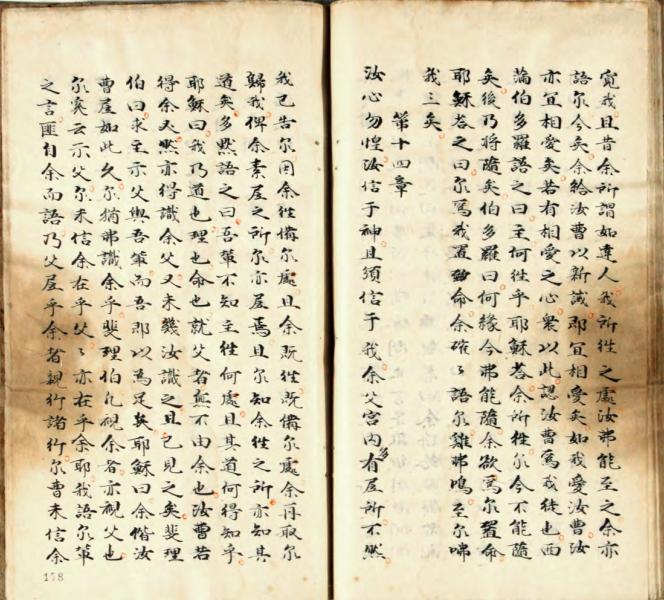 寬我且昔余所謂如達人我所徃之處汝弗能至之余亦
語尔今矣余給汝曹以新誡即宜相愛矣如我愛汝曹汝
亦宜相愛矣若有相愛之心衆以此認汝曹爲我徒也西
滿伯多羅語之曰主何徃乎耶穌荅余所徃尔今不能隨
矣後乃將隨矣伯多羅曰何緣今弗能隨余欲爲尔置命
耶穌荅之曰尔爲我置命余確〻語尔雞弗鳴至尔咈
我三矣
第十四章
汝心勿惶汝信于神且須信于我余父宮内多有屋所不然
我已告尔因余徃備尔處且余既徃既備尔處余再取尔
歸我俾余素屋之所尔亦屋焉且尔知余徃之所亦知其
道矣多默語之曰吾輩不知主徃何處且其道何得知乎
耶穌曰我乃道也理也命也就父者無不由余也汝曹若
得余又然亦得識余父又未幾汝識之且已見之矣斐理
伯曰求主示父與吾輩而吾即以爲足矣耶穌曰余偕汝
曹屋如此久尔猶弗識余乎斐理伯凡視余者亦視父也
尔奚云示父尔未信余在乎父〻亦在乎余耶我語尔輩
之言匪自余而語乃父屋乎余者親行諸行尔曹未信余
178